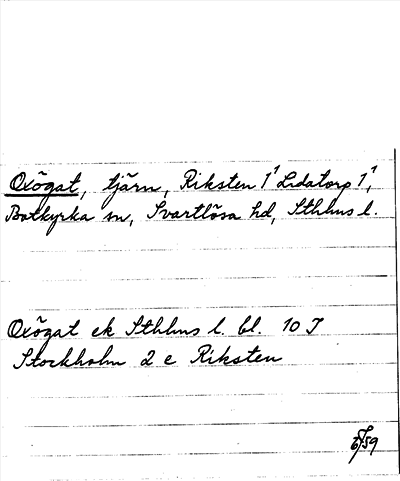 Oxögat, tjärn, Riksten 1¹ Lidatorp 1¹,
Botkyrka sn, Svartlösa hd, Sthlms l.
Oxögat ek Sthlms l. bl. 10 J
Stockholm 2 e Riksten
/59